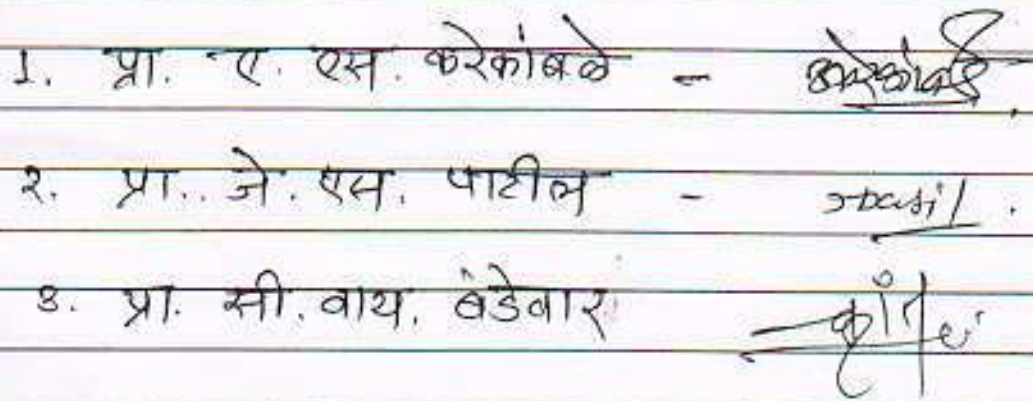 1. प्रा. ए. एस. करेकांबळे -
२. प्रा. जे. एस. पाटील -
३. प्रा. सी. वाय. बंडेवार